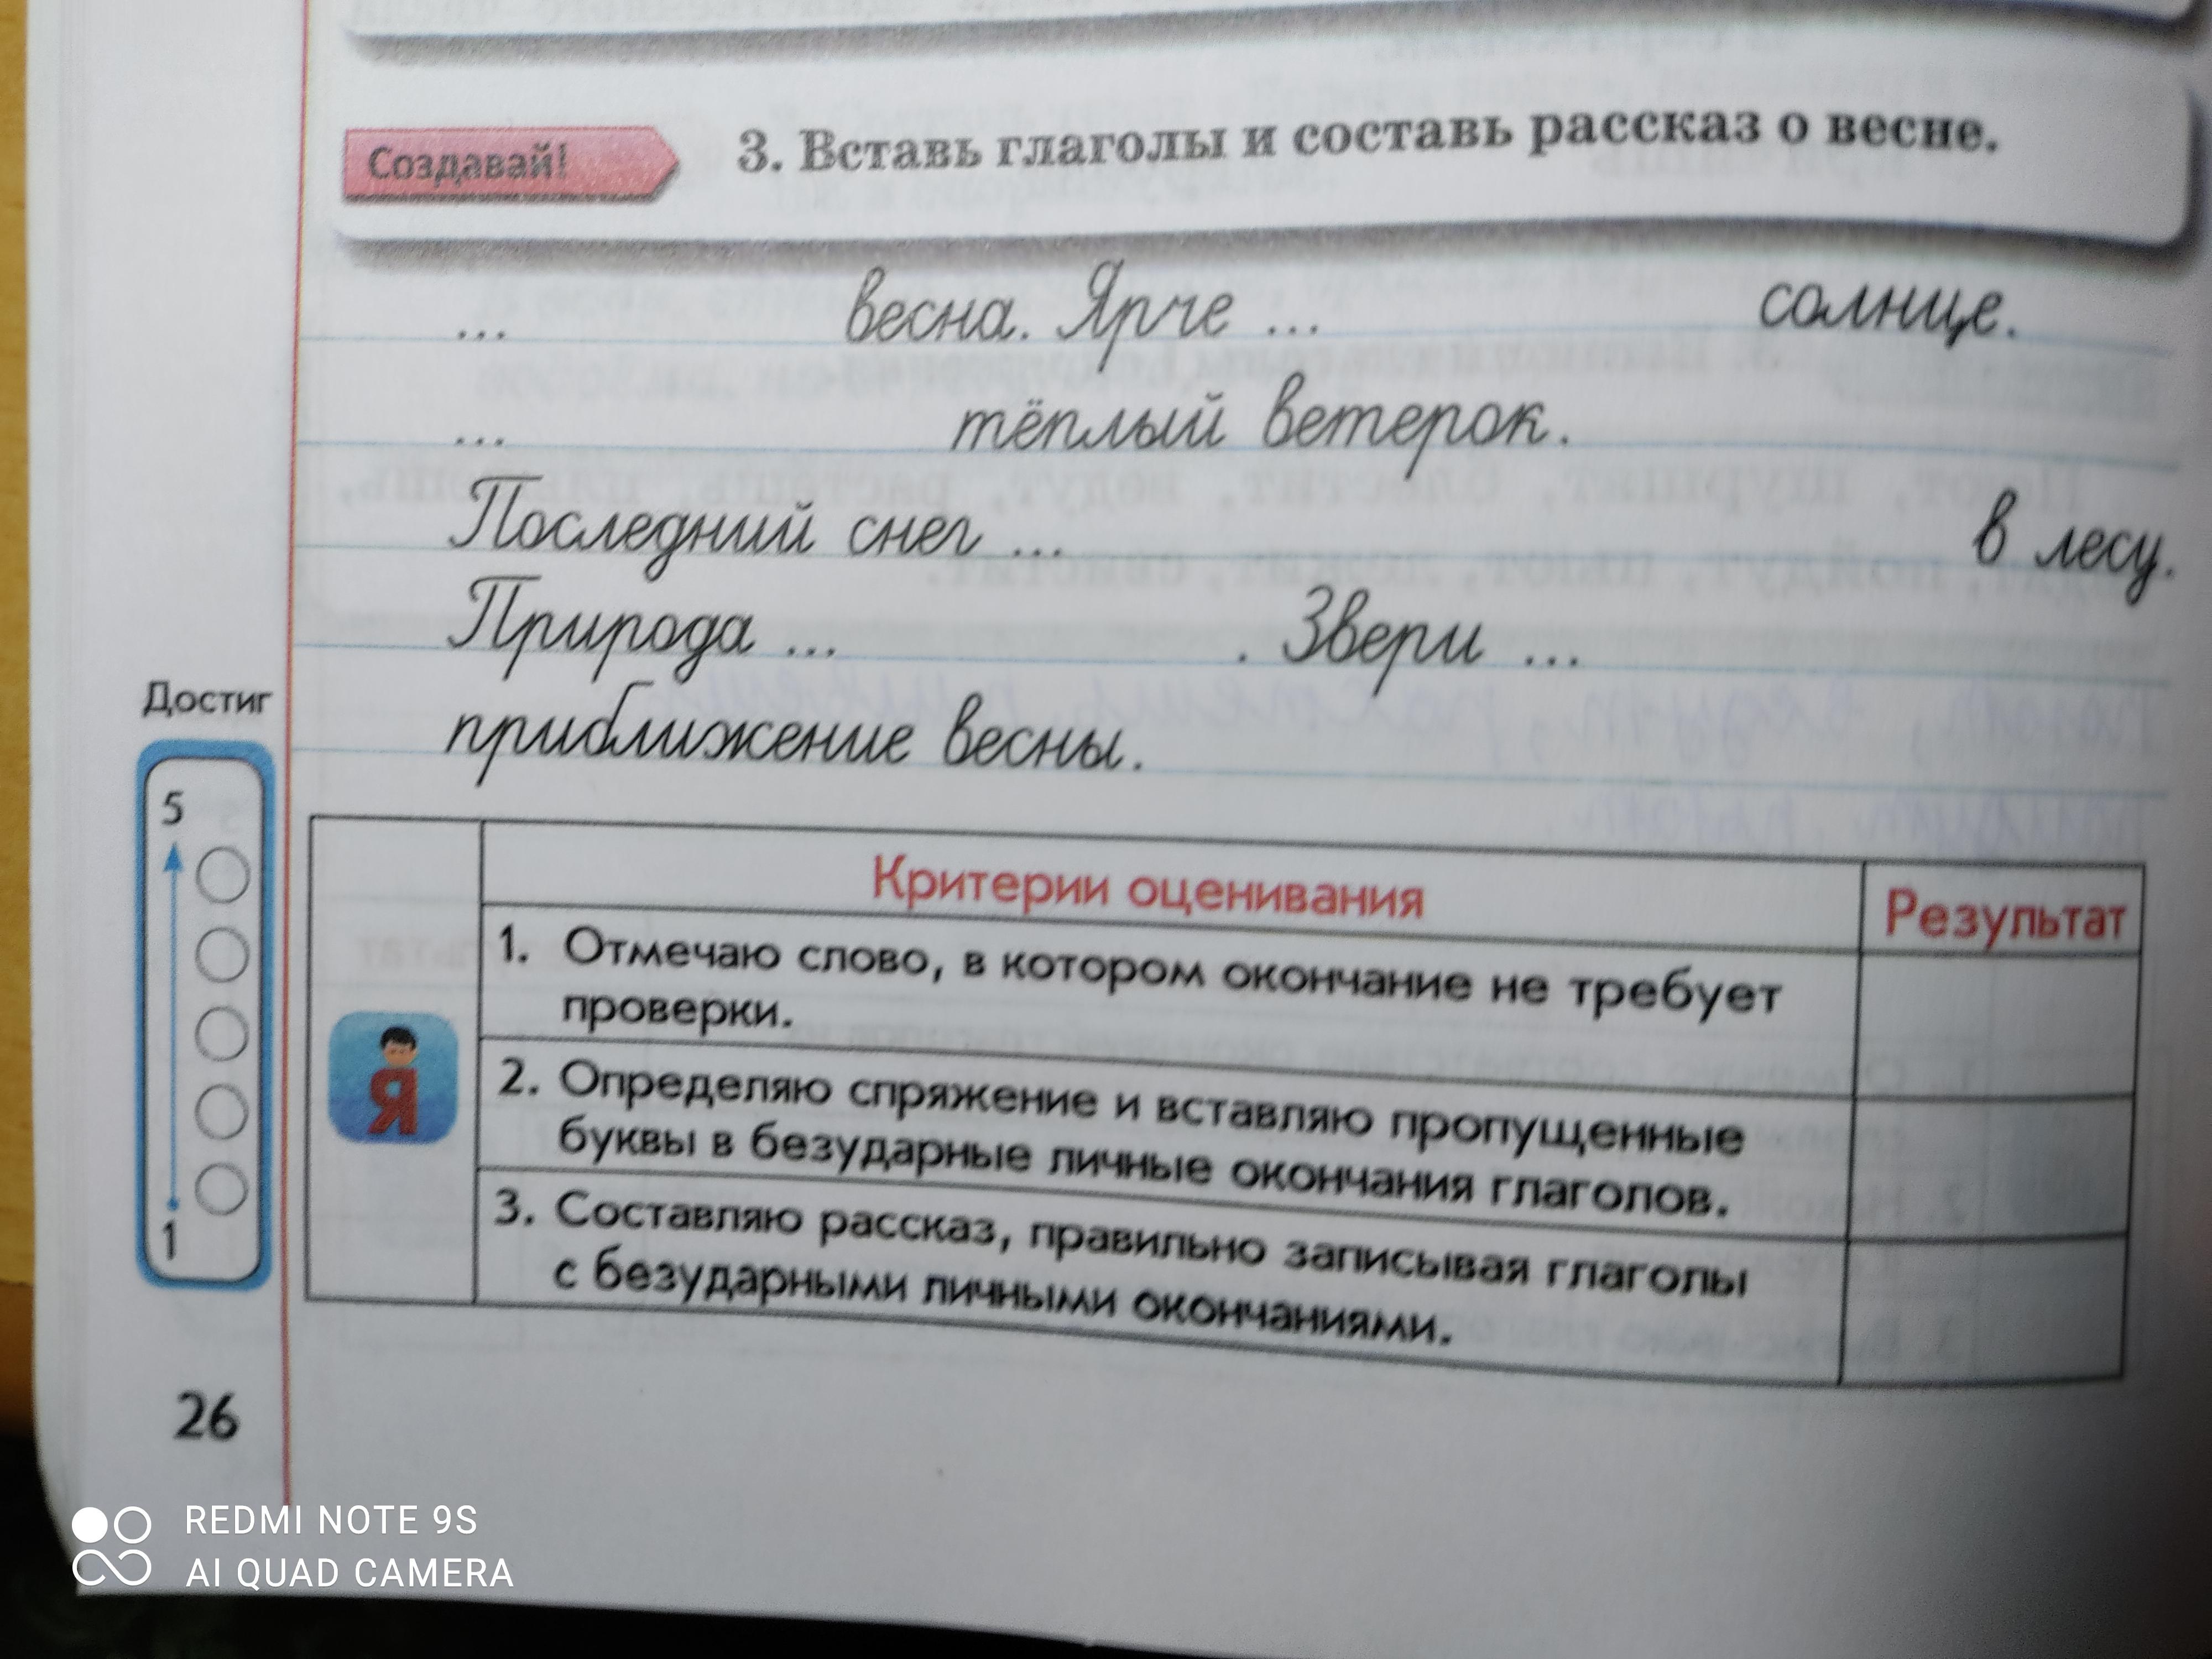 Создавай!
3. Вставь глаголы и составь рассказ о весне.
... весна. Ярче ... солнце.
... тёплый ветерок.
Последний снег ... в лесу.
Природа ... . Звери ...
приближение весны.
Достиг
5
1
Критерии оценивания
Результат
1. Отмечаю слово, в котором окончание не требует
проверки.
Я
2. Определяю спряжение и вставляю пропущенные
буквы в безударные личные окончания глаголов.
3. Составляю рассказ, правильно записывая глаголы
с безударными личными окончаниями.
26
REDMI NOTE 9S
AI QUAD CAMERA